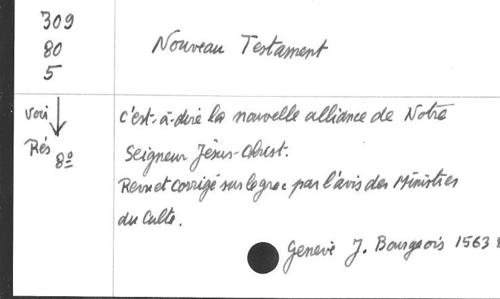 309
80
5
Nouveau Testament
voir
Rés 8º
c'est-à-dire la nouvelle alliance de Notre
Seigneur Jésus-Christ.
Revu et corrigé sur le grec par l'avis des Ministres
du Culte.
Genève J. Bourgeois 1563